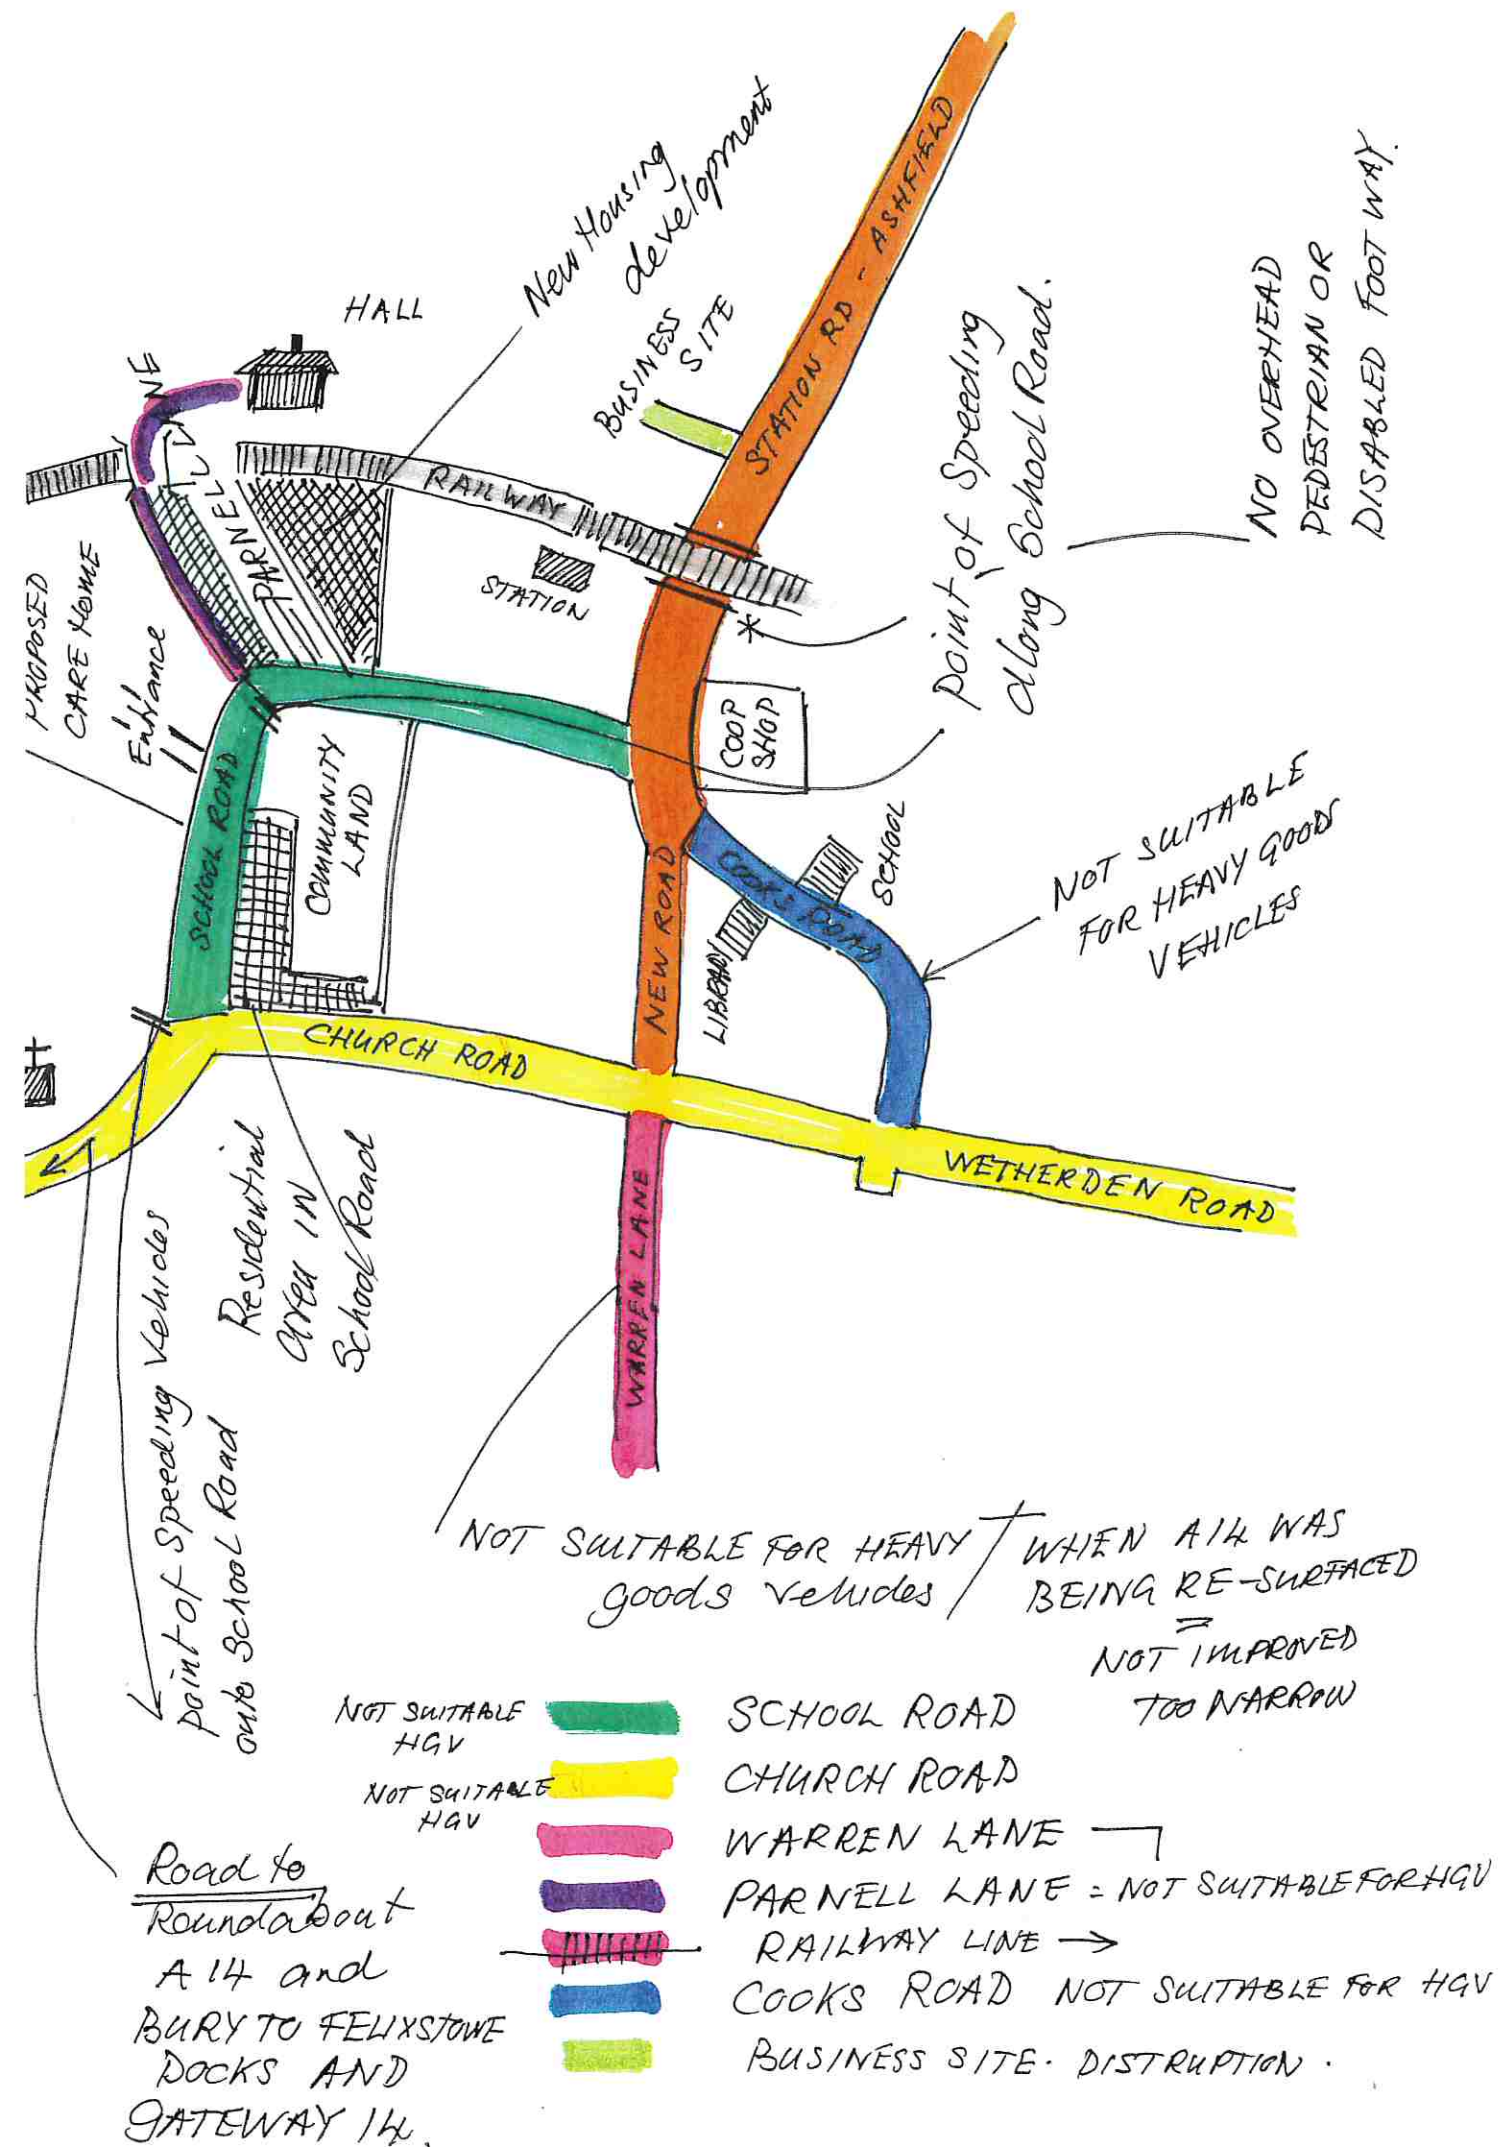 HALL
New Housing
development
BUSINESS
SITE
STATION RD - ASHFIELD
NO OVERHEAD
PEDESTRIAN OR
DISABLED FOOT WAY.
point of Speeding
along School Road.
RAILWAY
STATION
PARNELL
LANE
PROPOSED
CARE Home
Entrance
SCHOOL ROAD
COMMUNITY
LAND
COOP
SHOP
NEW ROAD
COOKS ROAD
SCHOOL
LIBRARY
NOT SUITABLE
FOR HEAVY GOODS
VEHICLES
CHURCH ROAD
WETHERDEN ROAD
WARREN LANE
Residential
area IN
School Road
point of Speeding Vehicles
onto School Road
NOT SUITABLE FOR HEAVY
goods vehicles
WHEN A14 WAS
BEING RE-SURFACED
=
NOT IMPROVED
TOO NARROW
NOT SUITABLE
HGV
SCHOOL ROAD
NOT SUITABLE
HGV
CHURCH ROAD
WARREN LANE
PARNELL LANE = NOT SUITABLE FOR HGV
RAILWAY LINE →
COOKS ROAD NOT SUITABLE FOR HGV
BUSINESS SITE. DISTRUPTION.
Road to
Roundabout
A14 and
BURY TO FELIXSTOWE
DOCKS AND
GATEWAY 14.